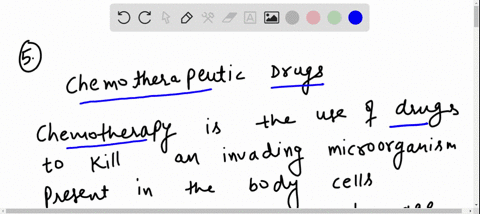 5.
Chemotherapeutic Drugs
Chemotherapy is the use of drugs
to kill an invading microorganism
Present in the body cells